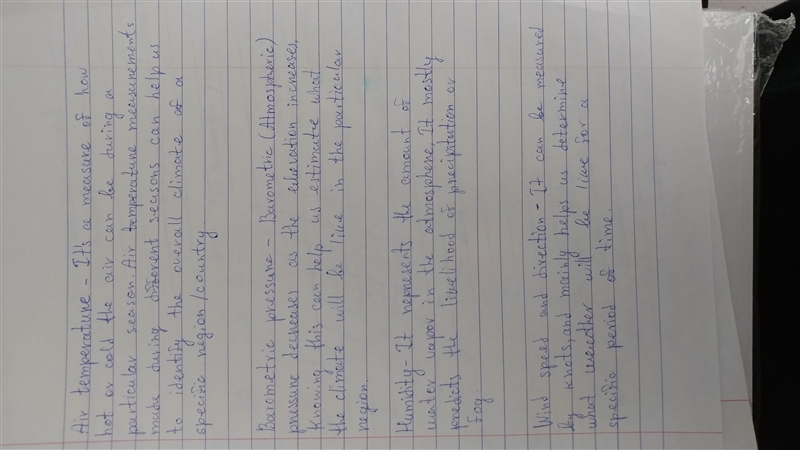 Air temperature - It's a measure of how
hot or cold the air can be during a
particular season. Air temperature measurements
made during different seasons can help us
to identify the overall climate of a
specific region/country.
Barometric pressure - Barometric (Atmospheric)
pressure decreases as the elevation increases,
Knowing this can help us estimate what
the climate will be like in the particular
region.
Humidity - It represents the amount of
water vapor in the atmosphere, It mostly
predicts the likelihood of precipitation or
Fog.
Wind speed and direction - It can be measured
by knots, and mainly helps us determine
what weather will be like for a
specific period of time.